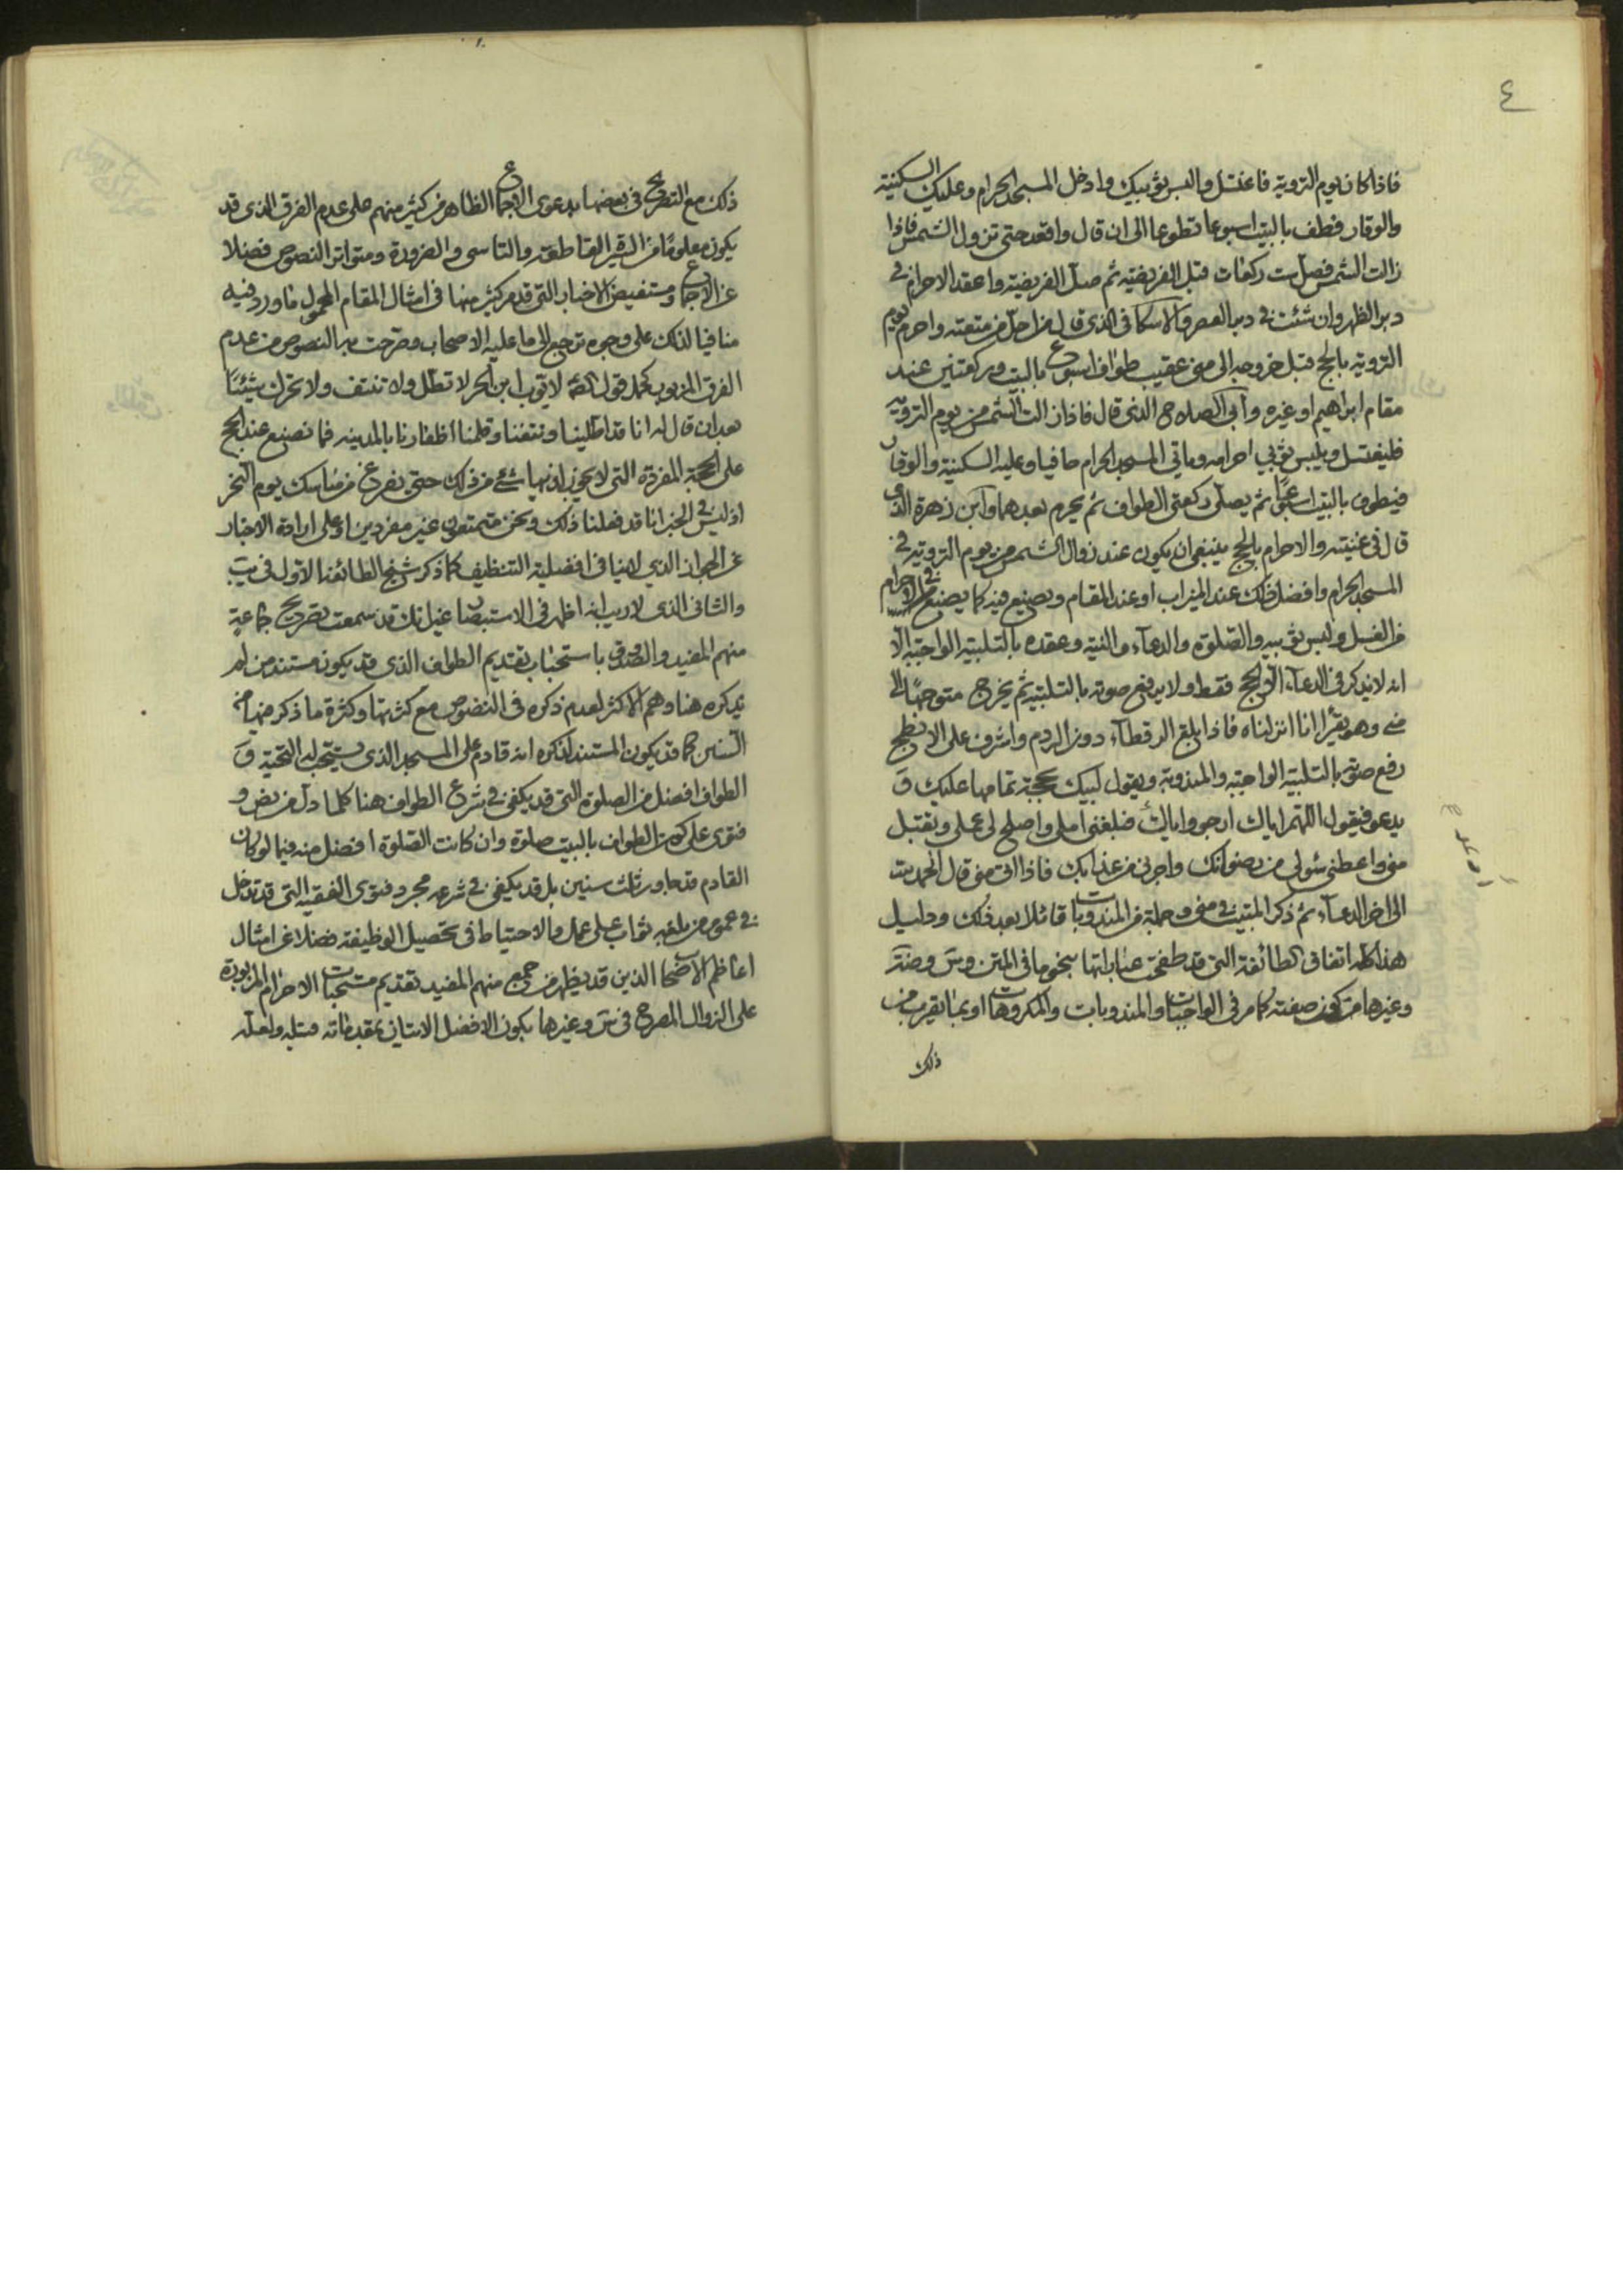 ٤
فاذا كان يوم التروية فاغتسل والبس ثوبيك وادخل المسجد الحرام وعليك السكينة
والوقار فطف بالبيت اسبوعا تطوعا الى ان قال واقعد حتى تزول الشمس فاذا
زالت الشمس فصل ست ركعات قبل الفريضة ثم صل الفريضة واعقد الاحرام في
دبر الظهر وان شئت في دبر العصر والاسكافي الذي قال من احل من متعته واحرم يوم
التروية بالحج قبل خروجه الى منى عقيب طواف اسبوع بالبيت وركعتين عند
مقام ابراهيم او غيره وابي الصلاح الذي قال فاذا زالت الشمس من يوم التروية
فليغتسل ويلبس ثوبي احرامه وياتي المسجد الحرام حافيا وعليه السكينة والوقار
فيطوف بالبيت اسبوعا ثم يصلى ركعتى الطواف ثم يحرم بعدهما وابن زهرة الذي
قال في غنيته والاحرام بالحج ينبغي ان يكون عند زوال الشمس من يوم التروية في
المسجد الحرام وافضل ذلك عند الميزاب او عند المقام ويصنع فيه كما يصنع في الاحرام
من الغسل ولبس ثوبيه والصلوة والدعاء والنية وعقده بالتلبية الواجبة الا
انه لا يذكر في الدعاء الا الحج فقط ولا يرفع صوته بالتلبية ثم يخرج متوجها الى
منى وهو يقرأ انا انزلناه فاذا بلغ الرقطاء دون الردم واشرف على الابطح
رفع صوته بالتلبية الواجبة والمندوبة ويقول لبيك بحجة تمامها عليك و
يدعو فيقول اللهم اياك ارجو واياك فبلغني املي واصلح لي عملي وتقبل
مني واعطني سؤلي من رضوانك واجرني من عذابك فاذا اتى منى قال الحمد لله
الى اخر الدعاء ثم ذكر المبيت في منى وجملة من المندوبات قائلا بعد ذلك ودليل
هذا كله اتفاق الطائفة التي قد طفحت عباراتها بنحو ما في المتن
وغيرها من كون صفته كما مر في الواجبات والمندوبات والمكروهات او بما يقرب من
ذلك
ذلك مع التصريح في بعضها بدعوى الاجماع الظاهر من كثير منهم على عدم الفرق الذي قد
يكون معلوما من السيرة القاطعة والتاسى والضرورة ومتواتر النصوص فضلا
عن الاجماع ومستفيض الاخبار التي قد مر كثير منها في امثال المقام المحمول ما ورد فيه
منافيا لذلك على وجوه ترجع الى ما عليه الاصحاب وصرحت به النصوص من عدم
الفرق المزبور كحمل قول لايوب ابن الحر لا تطل ولا تنتف ولا تحرك شيئا
بعد ان قال له انا قد اطلينا ونتفنا وقلمنا اظفارنا بالمدينه فما نصنع عند الحج
على الحجة المفردة التي لا يجوز فيها شئ من ذلك حتى يفرغ من مناسك يوم النحر
اذ ليس في الخبر انا قد فعلنا ذلك ونحن متمتعون غير مفردين او على ارادة الاخبار
عن الجواز الذي لا ينافي افضلية التنظيف كما ذكر شيخ الطائفة الاول في يب
والثاني الذي لا ريب انه اظهر في الاستبصار غير انك قد سمعت تصريح جماعة
منهم المفيد والصدوق باستحباب تقديم الطواف الذي قد يكون مستند من لم
يذكره هنا وهم الاكثر لعدم ذكره في النصوص مع كثرتها وكثرة ما ذكر فيها من
السنن كما قد يكون المستند لذكره انه قادم على المسجد الذي يستحب له التحية و
الطواف افضل من الصلوة التي قد يكفي في شرع الطواف هنا كلما دل من نص و
فتوى على كون الطواف بالبيت صلوة وان كانت الصلوة افضل منه فيما لو كان
القادم قد جاور ثلث سنين بل قد يكفي في شرعه مجرد فتوى الفقيه التي قد تدخل
في عموم من بلغه ثواب على عمل والاحتياط في تحصيل الوظيفة فضلا عن امثال
اعاظم الاصحاب الذين قد يظهر من جمع منهم المفيد تقديم مستحبات الاحرام المزبورة
على الزوال المصرح في وغيرها بكون الافضل الاتيان بمقدماته قبله ولعله